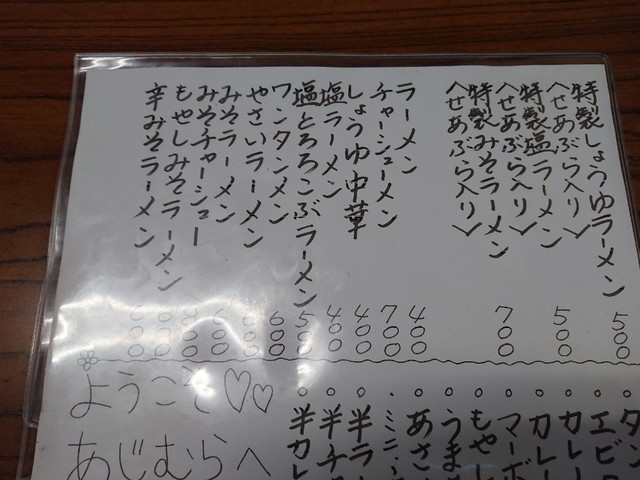 特製しょうゆラーメン 500
〈せあぶら入り〉
特製塩ラーメン 500
〈せあぶら入り〉
特製みそラーメン 700
〈せあぶら入り〉
ラーメン 400
チャーシューメン 700
しょうゆ中華 400
塩ラーメン 400
塩とろろこぶラーメン 500
ワンタンメン 600
やさいラーメン
みそラーメン
みそチャーシュー
もやしみそラーメン
辛みそラーメン
カレ
カレー
マーボ
もやし
うま
あさ
ミニ
半ラ
半チ
半カレ
ようこそ♡♡
あじむらへ